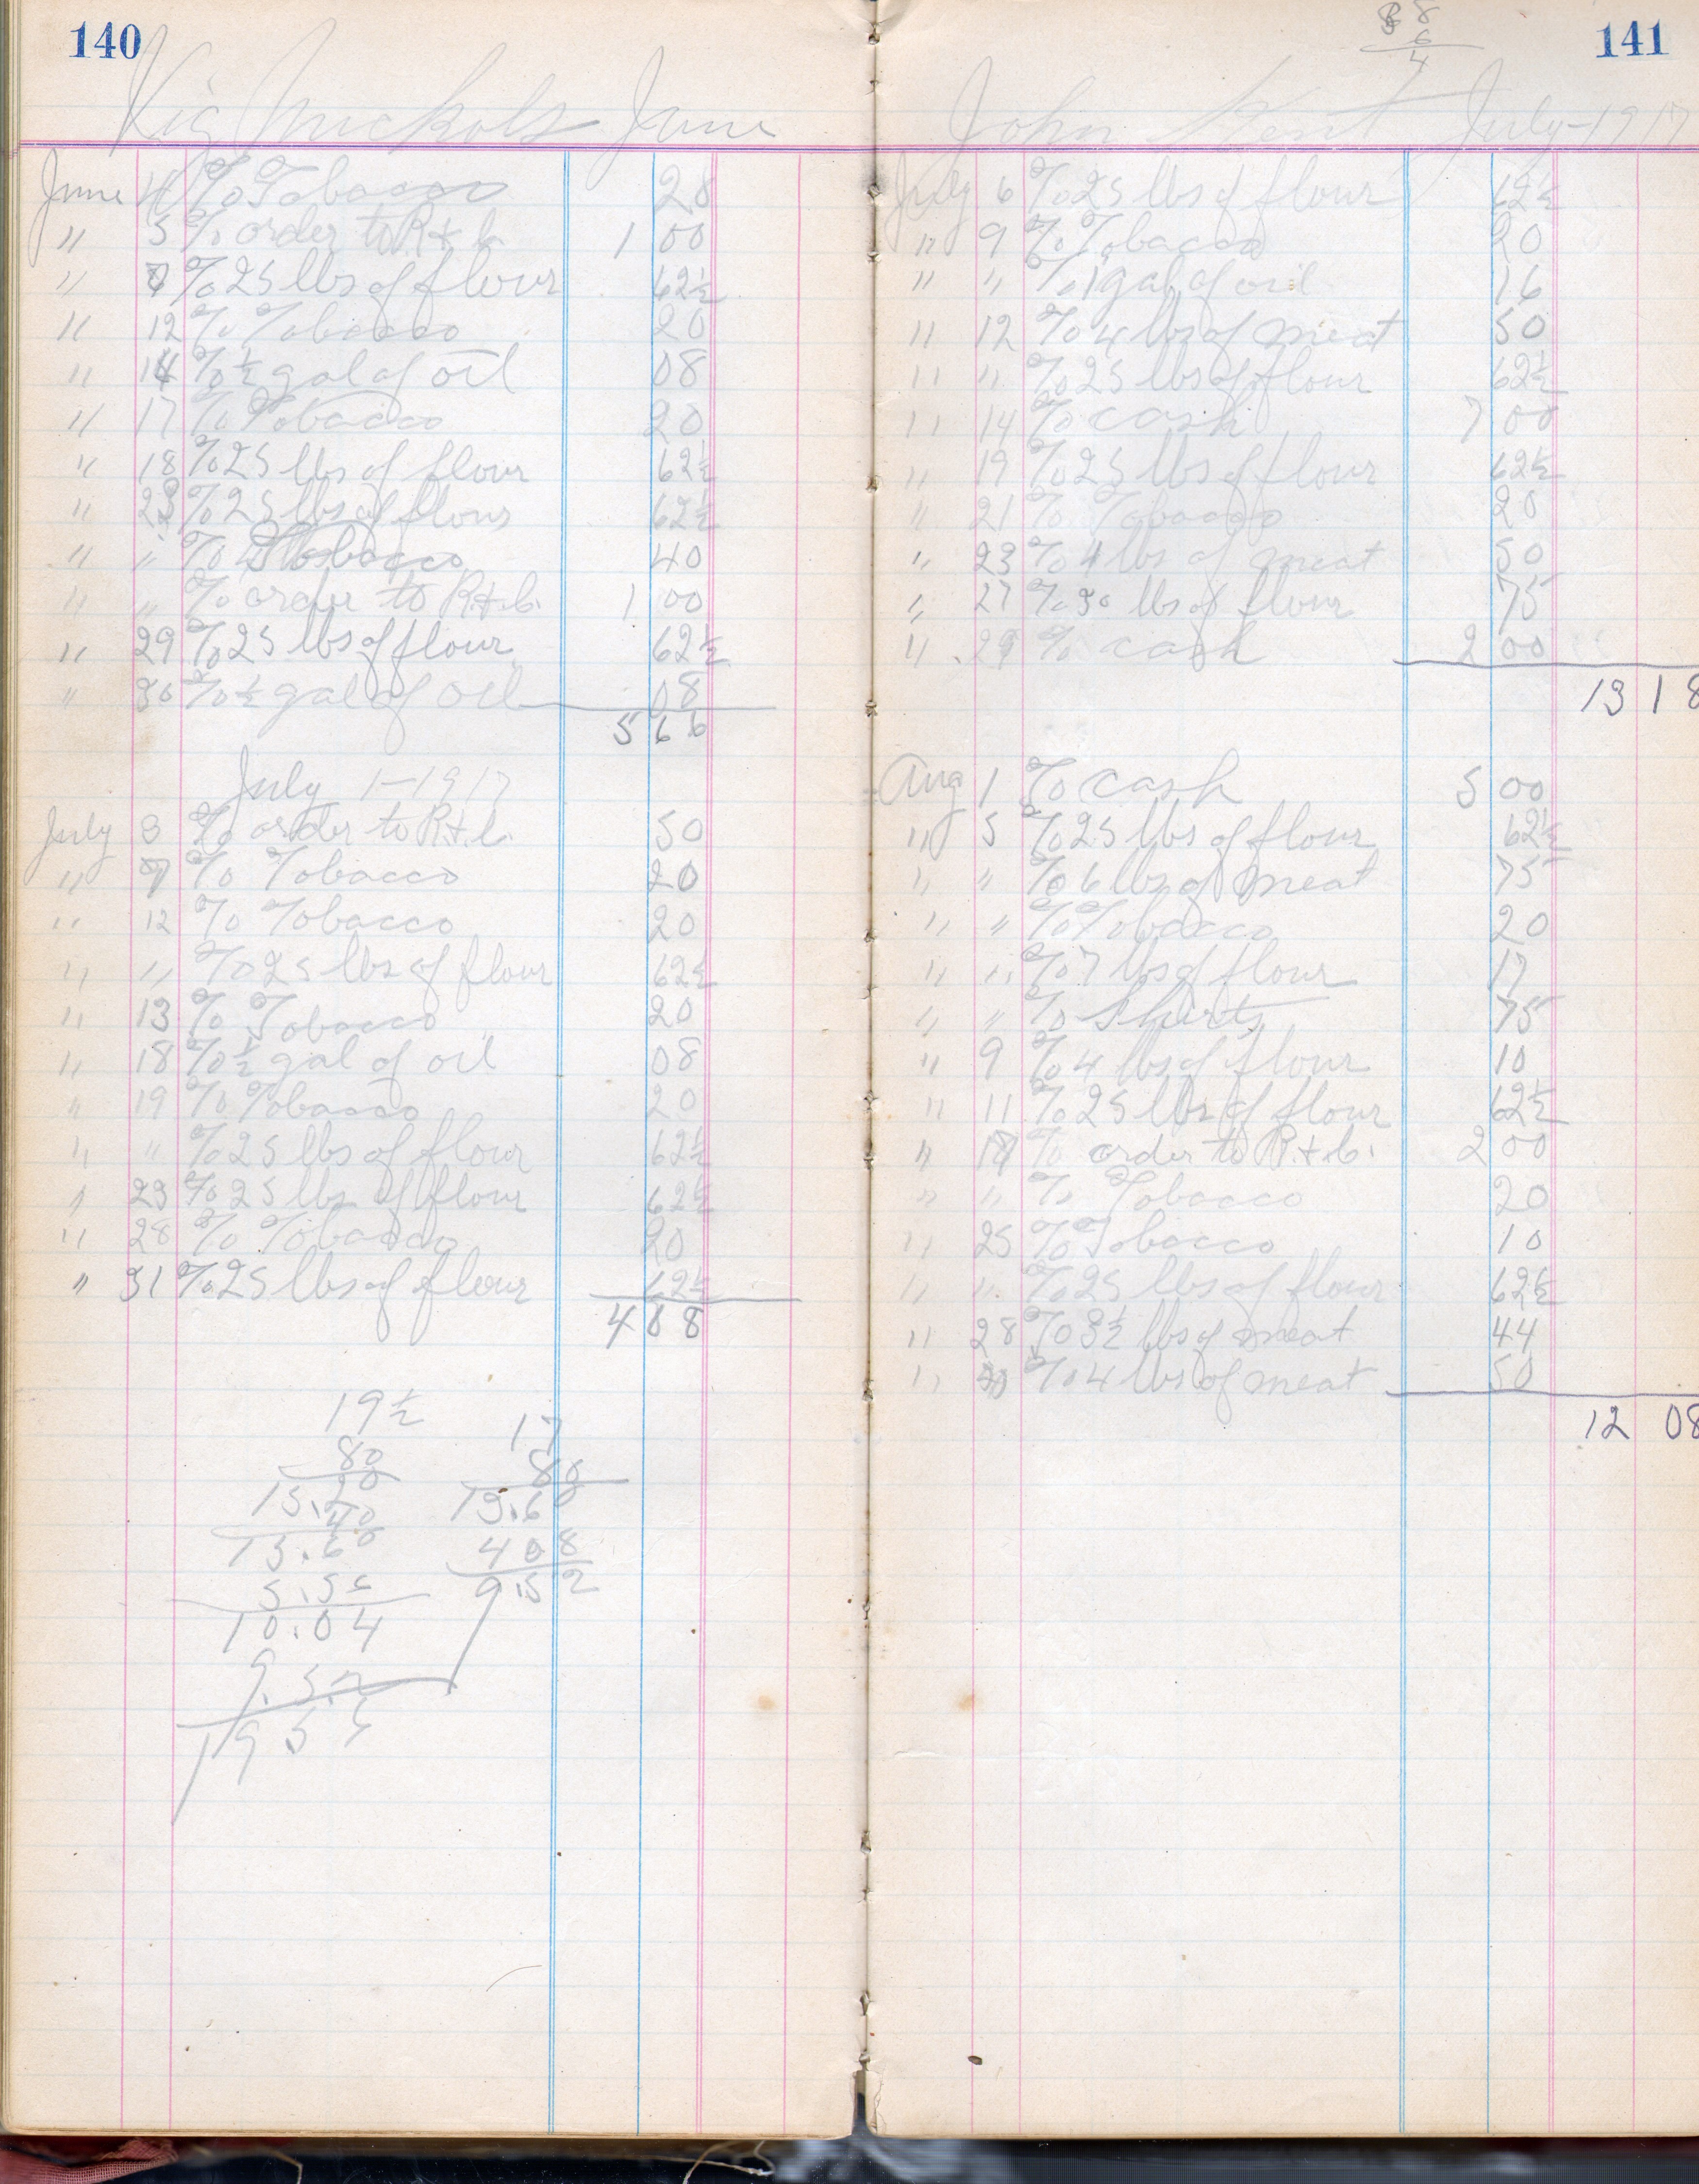 140
Nichols June
June 4 % Tobacco 28
" 5 % order to R. & Co. 1 00
" 7 % 25 lbs of flour 62½
" 12 % Tobacco 20
" 14 % ½ gal of oil 08
" 17 % Tobacco 20
" 18 % 25 lbs of flour 62½
" 23 % 25 lbs of flour 62½
" " % Tobacco 40
" " % order to R. & Co. 1 00
" 29 % 25 lbs of flour 62½
" 30 % ½ gal of oil 08
5 66
July 1-1917
July 3 % order to R. & Co. 50
" 9 % Tobacco 20
" 12 % Tobacco 20
" " % 25 lbs of flour 62½
" 13 % Tobacco 20
" 18 % ½ gal of oil 08
" 19 % Tobacco 20
" " % 25 lbs of flour 62½
" 23 % 25 lbs of flour 62½
" 28 % Tobacco 20
" 31 % 25 lbs of flour 62½
4 08
19½
80
15.20
40
15.60
5.56
10.04
9.52
19 5
17
80
13.60
408
9.52
141
8
6
4
John Kent July-1917
July 6 % 25 lbs of flour 62½
" 9 % Tobacco 20
" " % 1 gal of oil 16
" 12 % 4 lbs of meat 50
" " % 25 lbs of flour 62½
" 14 % cash 7 00
" 19 % 25 lbs of flour 62½
" 21 % Tobacco 20
" 23 % 4 lbs of meat 50
" 27 % 30 lbs of flour 75
" 29 % cash 2 00
13 18
Aug 1 % cash 5 00
" 5 % 25 lbs of flour 62½
" " % 6 lbs of meat 75
" " % Tobacco 20
" " % 7 lbs of flour 17
" " % Shirts 75
" 9 % 4 lbs of flour 10
" 11 % 25 lbs of flour 62½
" % order to R. & Co. 2 00
" " % Tobacco 20
" 25 % Tobacco 10
" " % 25 lbs of flour 62½
" 28 % 3½ lbs of meat 44
" % 4 lbs of meat 50
12 08